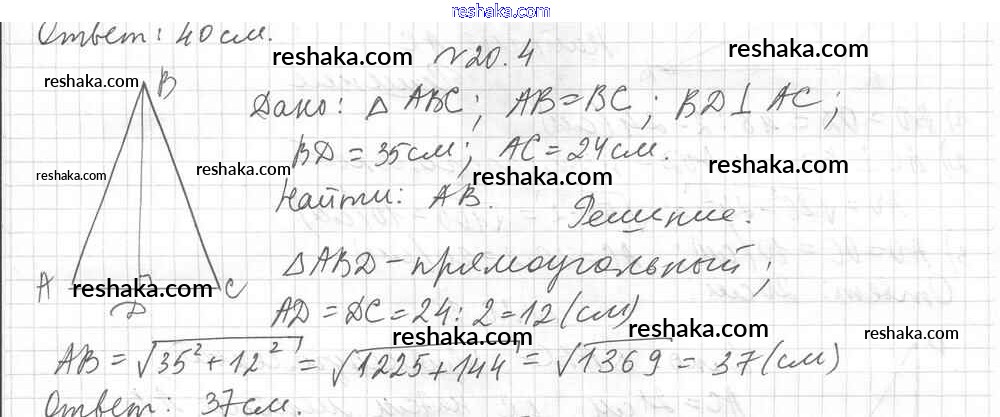 reshaka.com
Ответ: 40 см.
reshaka.com
reshaka.com
№20.4
reshaka.com
B
Дано: △ ABC; AB=BC; BD⊥AC;
BD=35см; AC=24см.
reshaka.com
reshaka.com
reshaka.com
reshaka.com
Найти: AB.
Решение.
△ABD-прямоугольный;
A
reshaka.com
C
D
AD=DC=24:2=12(см)
reshaka.com
reshaka.com
reshaka.com
AB=√35²+12²=√1225+144=√1369=37(см)
Ответ: 37см.